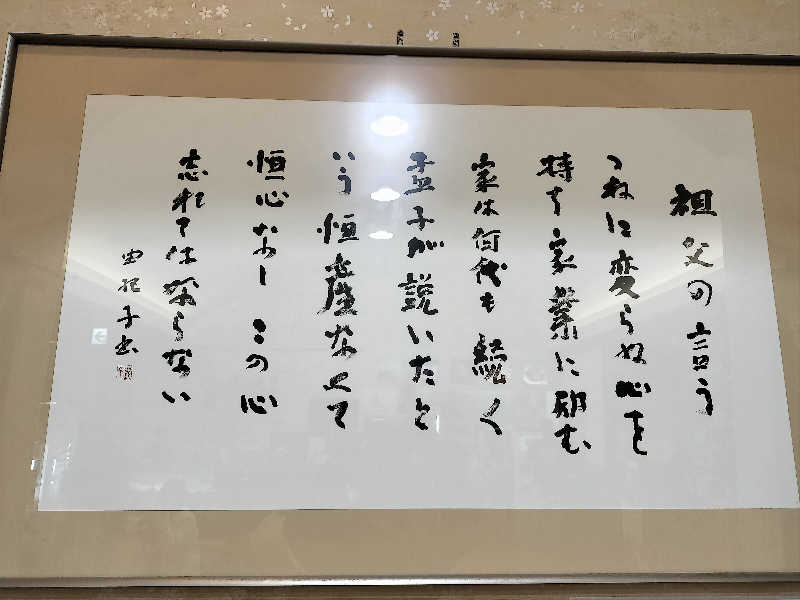 祖父の言う
つねに変らぬ心を
持ち家業に励む
家は何代も続く
孟子が説いたと
いう恒産なくて
恒心なし この心
忘れてはならない
由紀子書